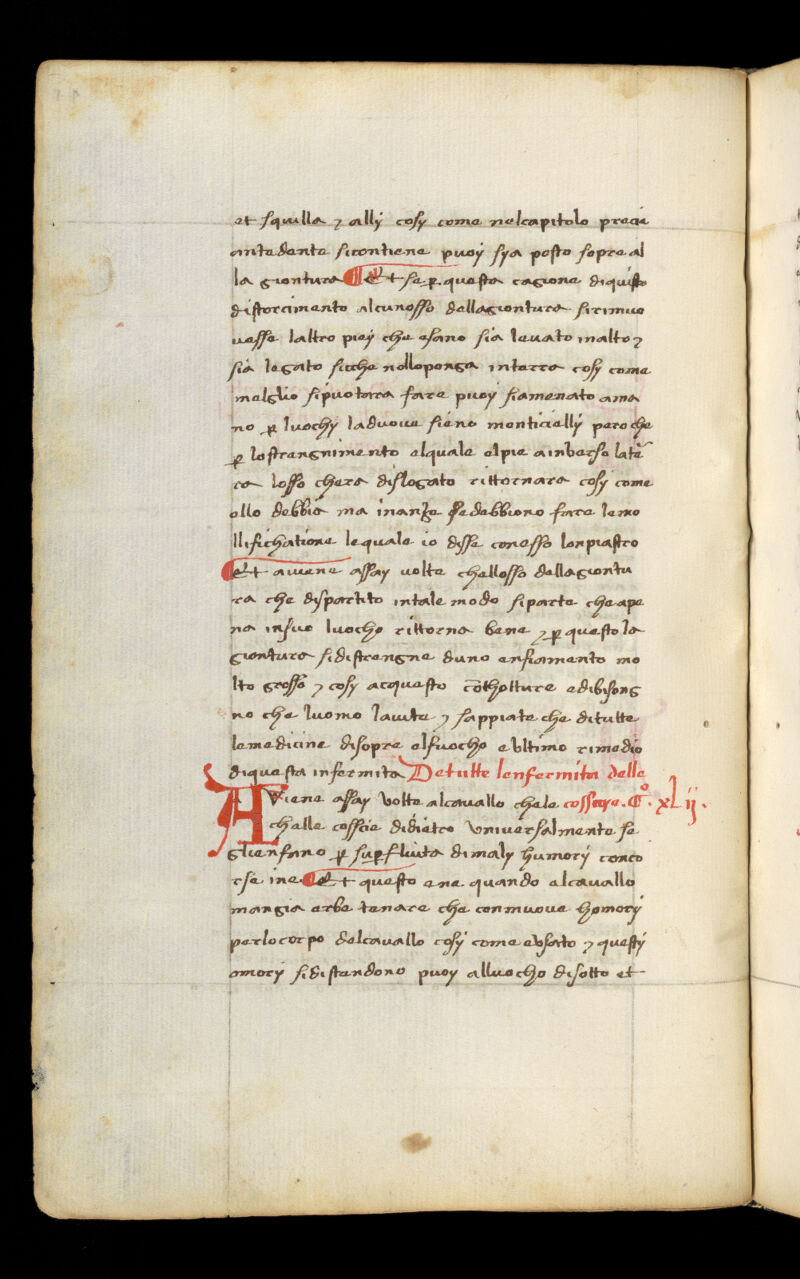 et squilla ⁊ allj cosy come nelcapitolo preci
antedente sicontiene puoy sya posto sopra al
la giontura Et se p questa cagione diquisto
distorcimento alcunosso dellagiontura sirimuo
vesse laltro piey che esano sia leuato inalto ⁊
sia legato sicche nolloponga interra cosy come
melglio sipuotera fare puoy siamenato ama
no p luochy laduoue siano monticially pero che
p lostrangnimento alquale elpie ainverso late
ra losso chera dislogato rittornara cosy come
ello debbia ma inanzo sedebbeno fare lemo
llifichatione lequale io disse conesso lonpiastro
Et auiene assay volte challosso dellagiontu
ra che dispartito intale modo siparte cheape
na insuo luocho rittorna bene ⁊ p questo la
giontura sidistrangne duno enfiamento mo
lto grosso ⁊ cosy acquesto cotholture edibisong
no che luomo laiuta ⁊ sappiate che ditutte
lemedicine disopre elfuocho eultimo rimedio
diquesta infermita Detutte lenfermita delle
AViene assay volte alcauallo chele cossoye. C°. xLij.
challe coscie didietro vniuersalmente se
glienfano p supfluita dimaly humory conco
rse ine Et questo ene quando alcauallo
mangia erbe tenere che conmuoue homorj
perlocorpo delcauallo cosy come eusato ⁊ questy
omory sidistandono puoy alluocho disotto et